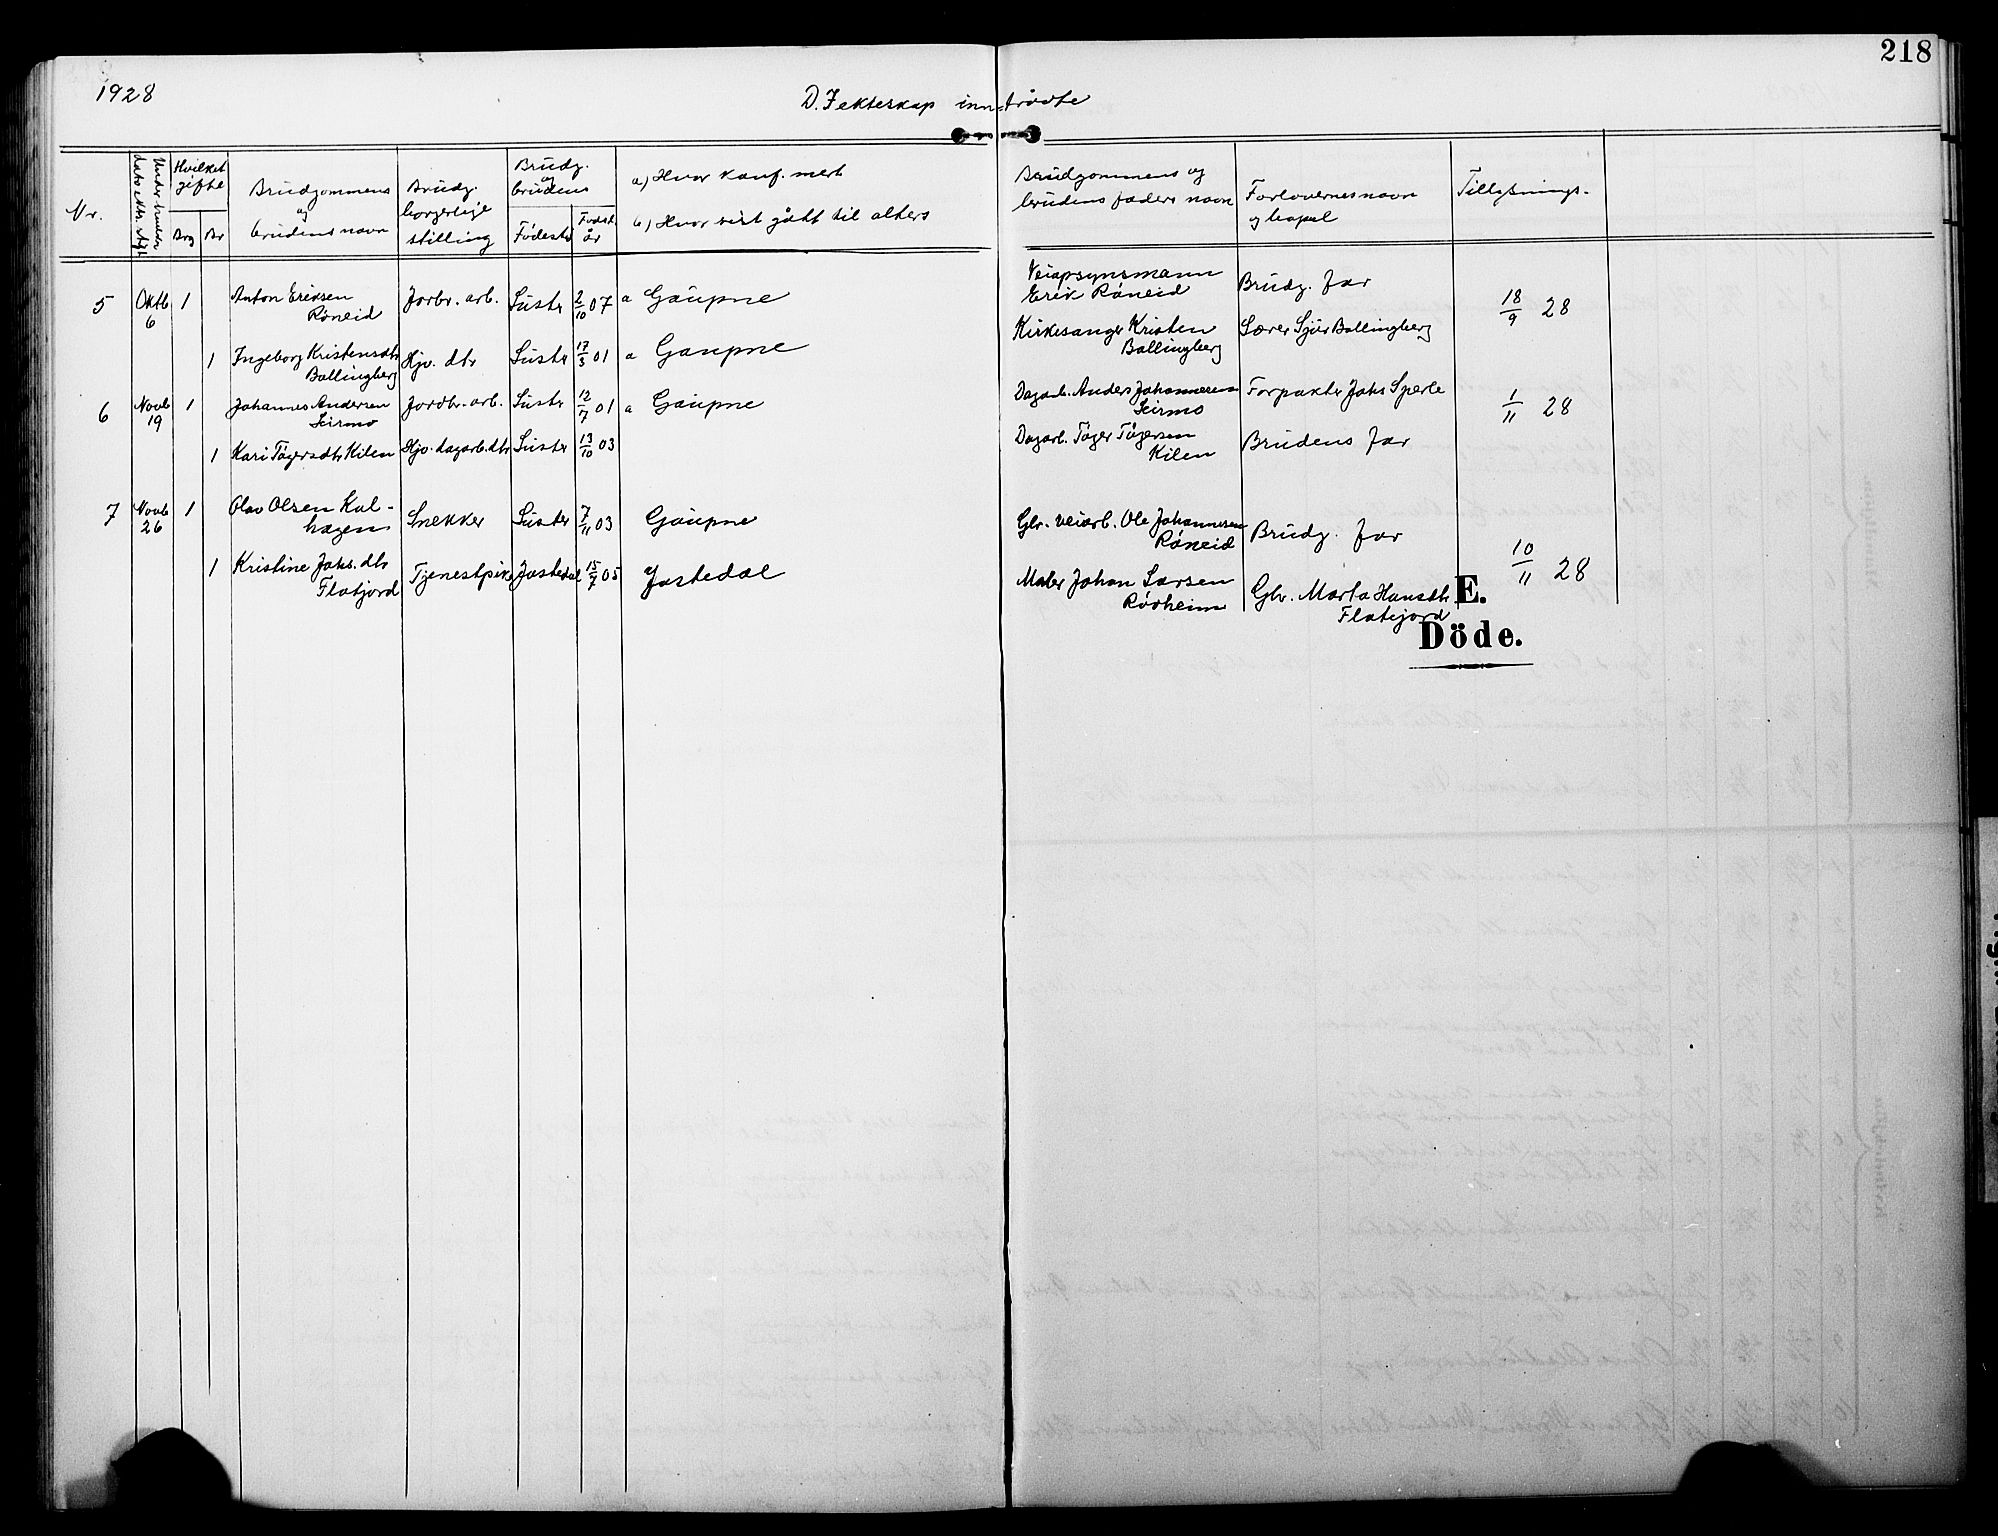 218
1928
D. Fekteskap inntrådte
Nr.
Under bruddr
dato
Hvilket
gifte
Brg
Br
Brudgommens
og
brudens navn
Brudg.
borgerlige
stilling
Brudg.
og
brudens
Fødest.
Fødst.
år
a) Hvor konf. mert
b) Hvor sist gått til alters
Brudgommens og
brudens faders navn
Forlovernes navn
og bopel
Tillysnings-
5 Oktb 6 1 Anton Eriksen Røneid Jorbr. arb. Luster 2/10 07 a Gaupne Veiopsynsmann Erik Røneid Brudg. far 18/9 28
1 Ingeborg Kristensdtr Bollingberg Hjv. dtr Luster 17/3 01 a Gaupne Kirkesanger Kristen Bollingberg Lærer Sjur Bollingberg
6 Novb 19 1 Johannes Andersen Leirmo Jordbr. arb. Luster 12/7 01 a Gaupne Dagarb. Anders Johannesen Leirmo Forpakter Johs Sperle 1/11 28
1 Kari Tøgersdtr Kilen Hjv. dagarb. dtr Luster 13/10 03 Dagarb. Tøger Tøgersen Kilen Brudens far
7 Novb 26 1 Olav Olsen Kal-
hagen Snekker Luster 7/11 03 Gaupne Gbr. veiarb. Ole Johannesen Røneid Brudg. far 10/11 28
1 Kristine Johs. dtr Flatjord Tjenestpike Jostedal 15/7 05 Jostedal Maler Johan Larsen Rørheim Gbr. Marta Hansdtr Flatjord
E.
Döde.